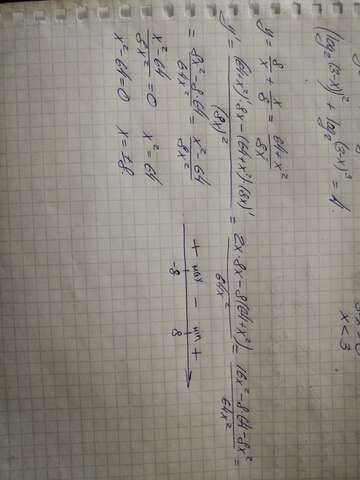 (log₂(3-x))² + log₂(3-x)³ = 4
x < 3
y = 8/x + x/8 = (64+x²)/8x
y' = ((64+x²)'·8x - (64+x²)(8x)')/(8x)² = (2x·8x - 8(64+x²))/64x² = (16x² - 8·64 - 8x²)/64x² =
= (8x² - 8·64)/64x² = (x² - 64)/8x²
(x² - 64)/8x² = 0 x² = 64
x² - 64 = 0 x = ±8.
+ max - min +
-8 8